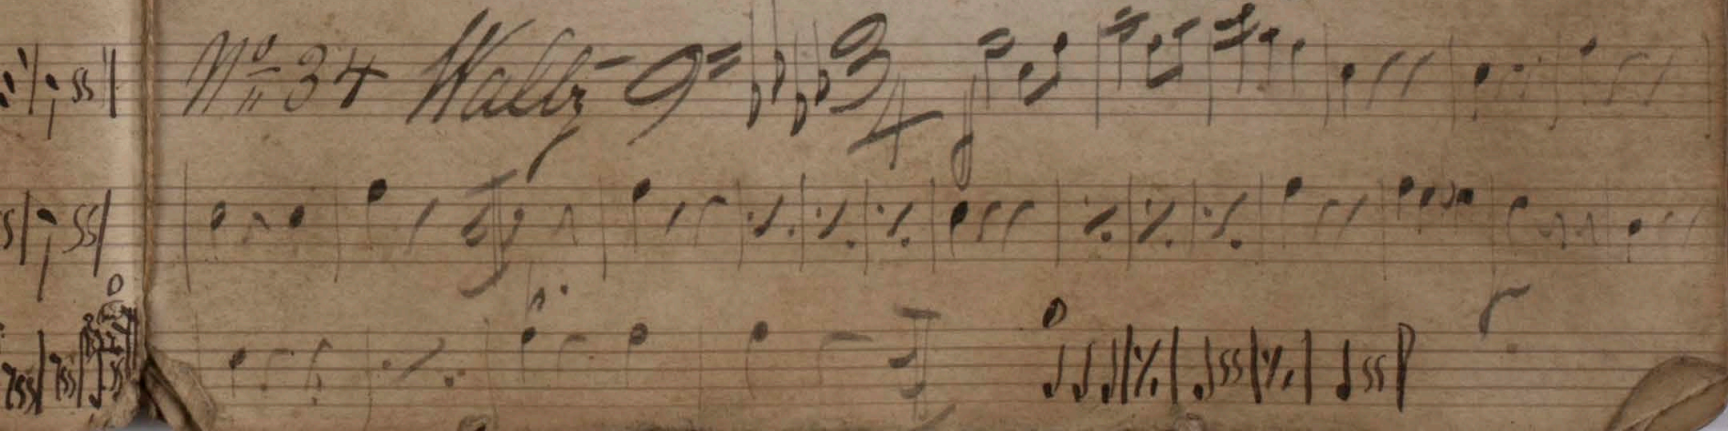 No 34 Waltz 3 4